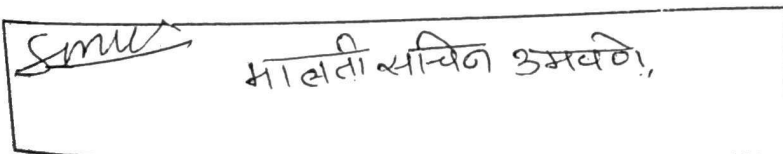 मालती सचिन उमवणे,